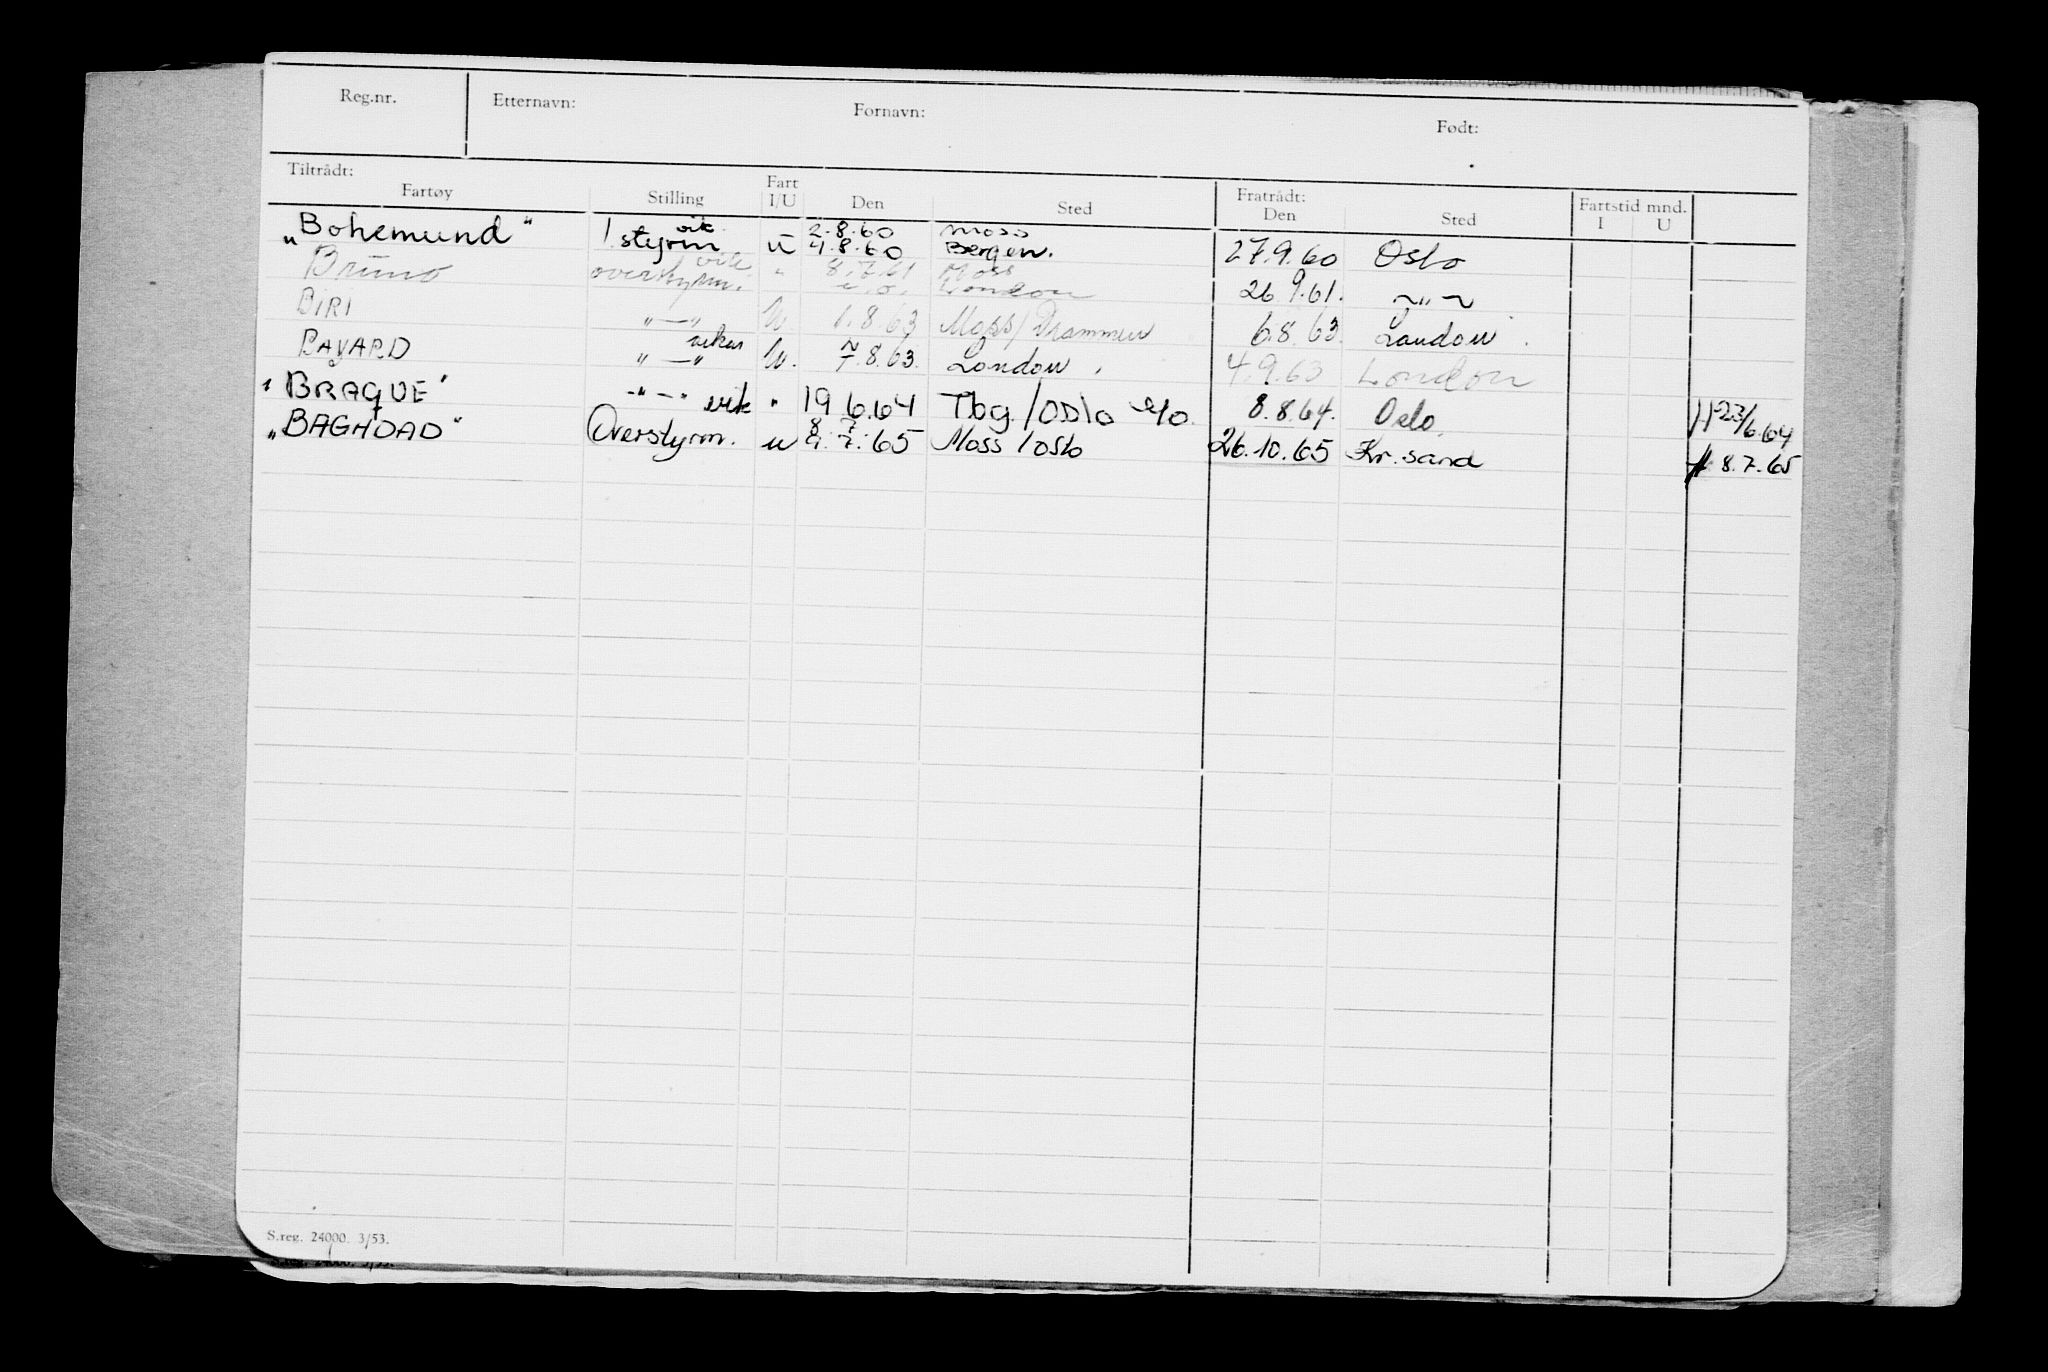 Reg.nr. Etternavn: Fornavn: Født:
Tiltrådt: Fratrådt: Fartstid mnd.
Fartøy Stilling Fart I/U Den Sted Den Sted I U
vik. 2.8.60 Moss
„Bohemund" 1 styrm u 4.8.60 Bergen. 27.9.60 Oslo
vik. 8.7.61 Moss
Bruno overstyrm. " London 26.9.61. ~"~
BIRI "—" U. 1.8.63 Moss/Drammen 6.8.63. London.
BAYARD "—" vikar U. 7.8.63. London. 4.9.63 London
"BRAQUE" "—" vik " 19 6.64 Tbg./Oslo 8.8.64. Oslo. 23/6.64
„BAGHDAD" Overstyrm. u 7.65 Moss/Oslo 26.10.65 Kr.sand 8.7.65
S.reg. 24000. 3/53.